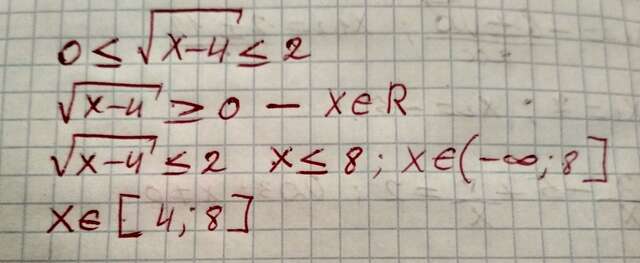 0 ≤ √(x-4) ≤ 2
√(x-4) ≥ 0 - x∈R
√(x-4) ≤ 2 x ≤ 8; x∈(-∞; 8]
x∈[4; 8]